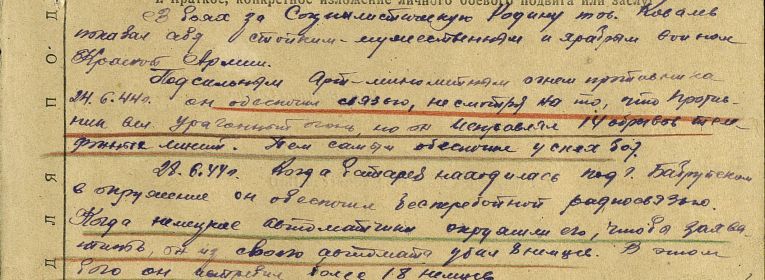 I Краткое, конкретное изложение личного боевого подвига или заслуг
В боях за Социалистическую Родину тов. Ковалев
показал себя стойким-мужественным и храбрым воином
Красной Армии.
Под сильным арт-минометным огнем противника
24.6.44г. он обеспечил связью, несмотря на то, что против-
ник вел ураганный огонь но он исправил 14 обрывов теле-
фонных линий. Тем самым обеспечил успех боя.
28.6.44г. Когда батарея находилась под г. Бабруйском
в окружение он обеспечил бесперебойной радиосвязью.
Когда немецкие автоматчики окружили его, чтобы захва-
тить, он из своего автомата убил 8 немцев. В этом
бою он истребил более 18 немцев
ДЛЯ ПОД